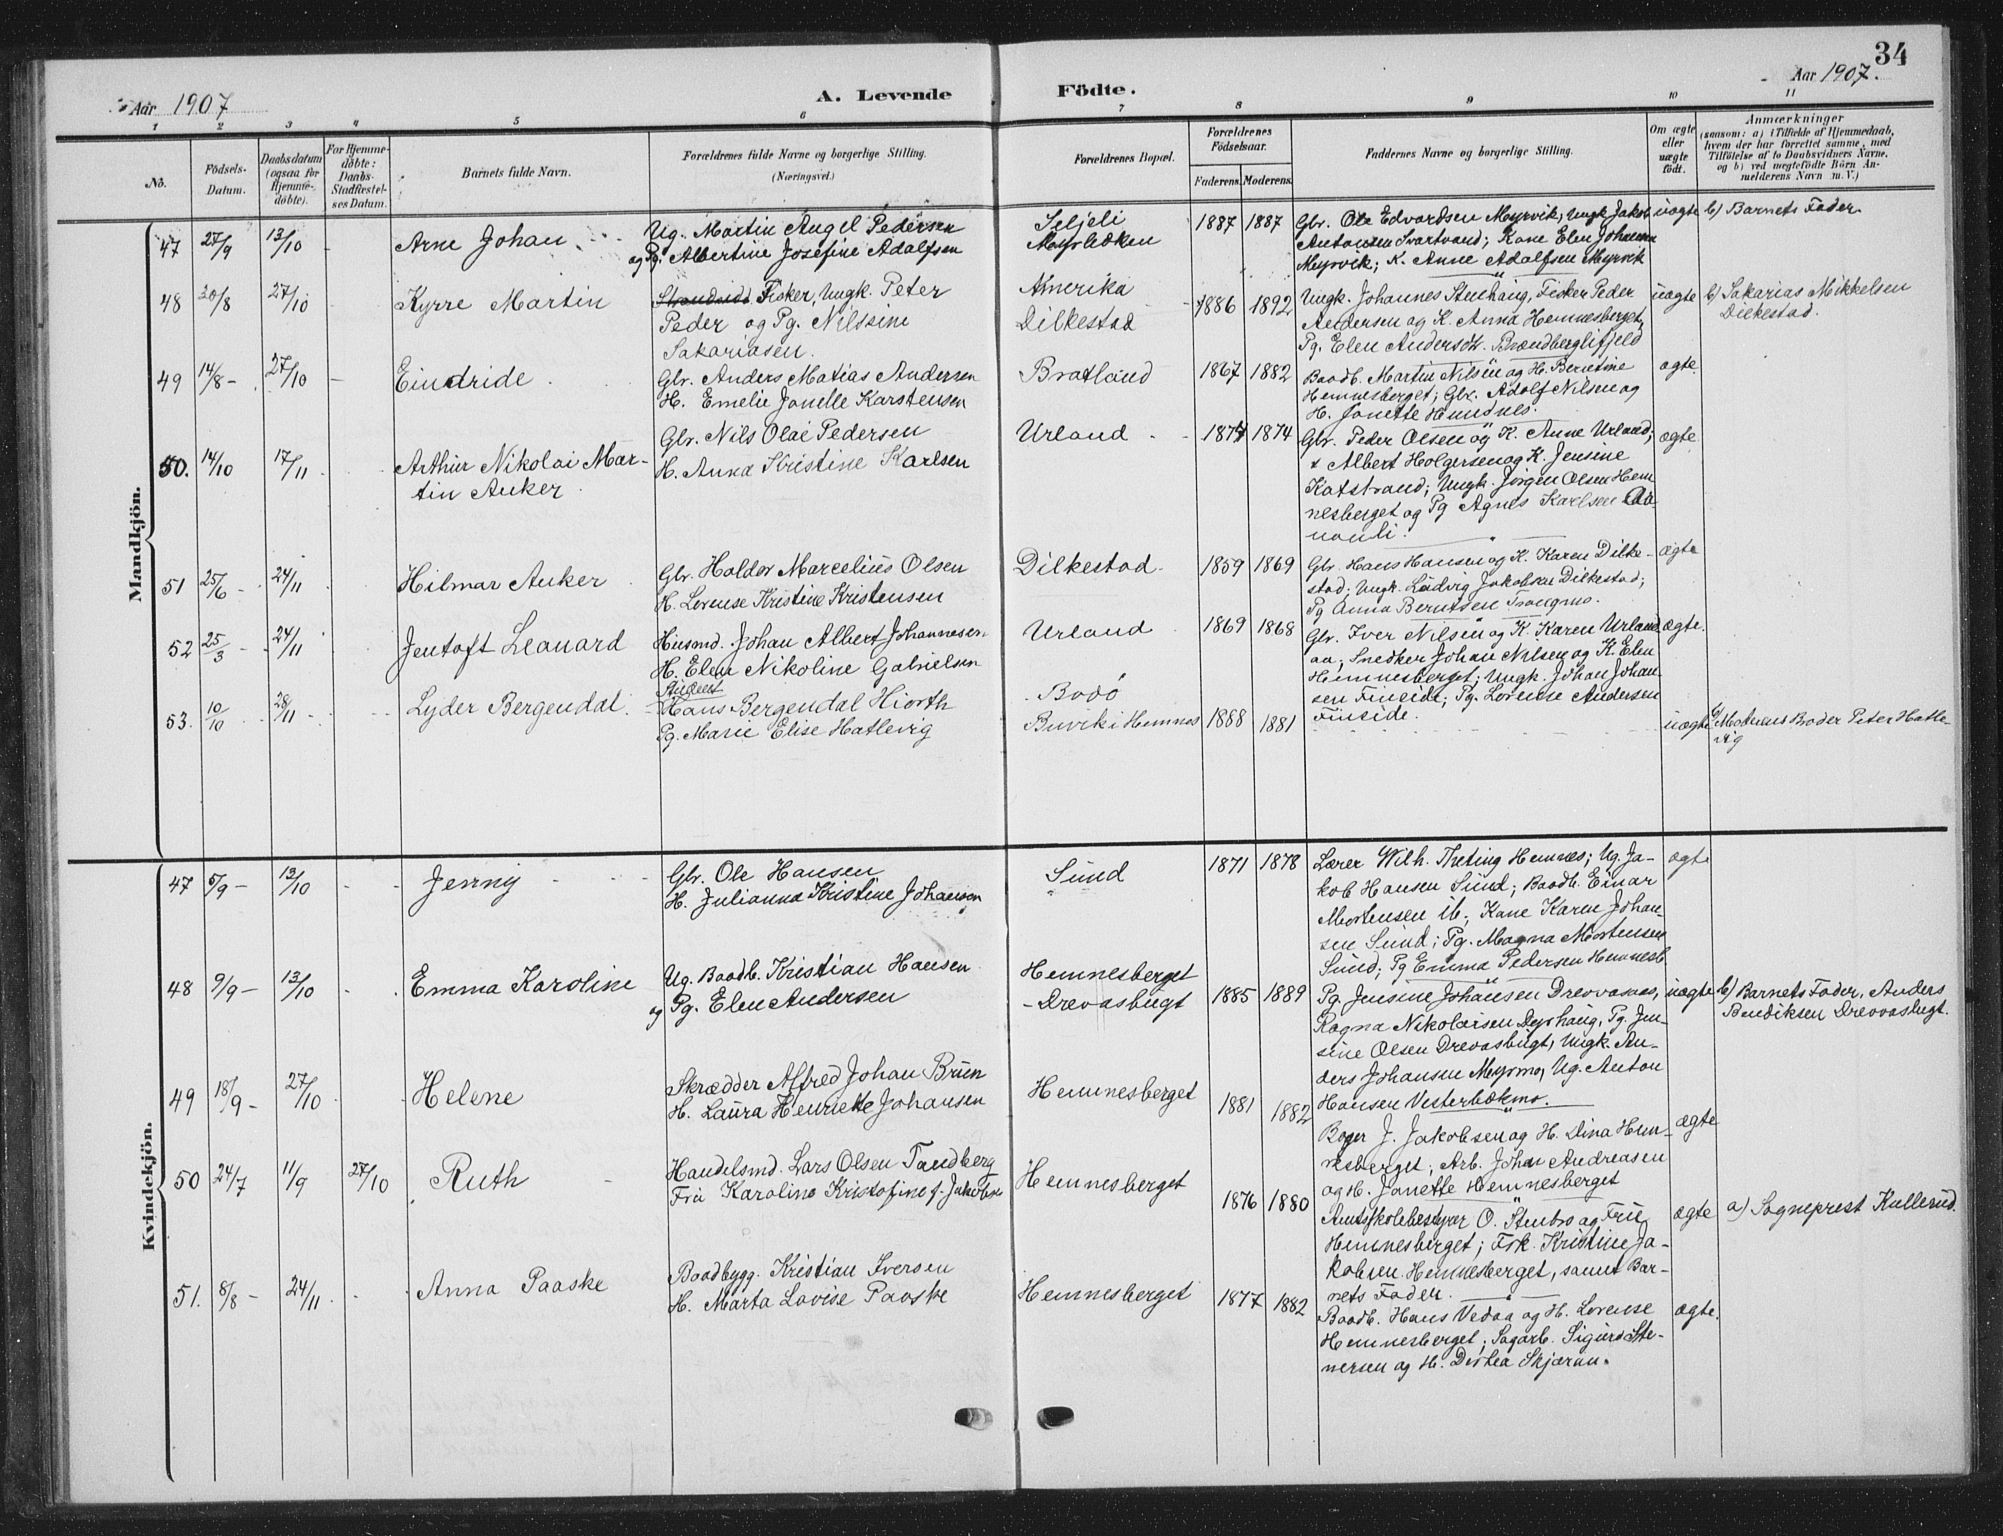 34
Aar 1907
A. Levende Födte.
Aar 1907.
1 2 3 4 5 6 7 8 9 10 11
No.
Födsels-
Datum.
Daabsdatum
(ogsaa for
Hjemme-
döbte).
For Hjemme-
döbte:
Daabs-
Stadfæstel-
ses Datum.
Barnets fulde Navn.
Forældrenes fulde Navne og borgerlige Stilling.
(Næringsvei.)
Forældrenes Bopæl.
Forældrenes
Födselsaar.
Faderens. Moderens.
Faddernes Navne og borgerlige Stilling.
Om ægte
eller
uægte
født.
Anmærkninger
(saasom: a) i Tilfælde af Hjemmedaab,
hvem der har forrettet samme, med
Tilföielse af to Daabsvidners Navne,
og b) ved uægtefödte Börn An-
melderens Navn m. V.)
Mandkjön.
47 27/9 13/10 Arne Johan
Ug. Martin Angel Pedersen
og Pg. Albertine Josefine Adolfsen
Seljeli
Myrbækken
1887 1887
Glr. Ole Edvardsen Myrvik, Ungk. Jakob
Antonsen Svartvand; Kone Elen Johansen
Myrvik; K. Anne Adolfsen Myrvik
uægte b) Barnets Fader
48 20/8 27/10 Kyrre Martin
Strandsid. Fisker, Ungk. Peter
Peder og Pg. Nilssine
Sakariasen.
Amerika
Dilkestad
1886 1892
Ungk. Johannes Stenhaug, Fisker Peder
Andersen og K. Anna Hemnesberget,
Pg. Elen Andersdt. Brændberglifjeld
uægte b) Sakarias Mikkelsen
Dilkestad.
49 14/8 27/10 Eindride
Glr. Anders Matias Andersen
H. Emelie Jonelle Karstensen
Bratland
1867 1882
Baadb. Martin Nilsen og H. Berntine
Hemnesberget; Glr. Adolf Nilsen og
H. Janette Hemnes.
ægte
50. 14/10 17/11 Arthur Nikolai Mar-
tin Anker
Glr. Nils Olai Pedersen
H. Anna Kristine Karlsen
Urland
1874 1874
Glr. Peder Olsen og K. Anne Urland;
+ Albert Holgersen og K. Jensine
Katstrand; Ungk. Jörgen Olsen Hem
nesberget og Pg Agnes Karlsen
ægte
51 25/6 24/11 Hilmar Anker
Glr. Haldor Marcelius Olsen
H. Lorense Kristine Kristensen
Dilkestad
1859 1869
Glr. Hans Hansen og K. Karen Dilke-
stad; Ungk. Ludvig Jakobsen Dilkestad;
Pg Anna Berntsen Trangmo.
ægte
52 25/3 24/11 Jentoft Leonard
Husmd. Johan Albert Johannesen
H. Elen Nikoline Gabrielsen
Urland
1869 1868
Glr. Iver Nilsen og K. Karen Urland
aa; Snedker Johan Nilsen og K. Elen
Hemnesberget; Ungk. Johan Johan-
sen Finside; Pg. Lorense Andersen
Finside.
ægte.
53. 10/10 28/11 Lyder Bergendal
Student
Hans Bergendal Hiorth
Pg. Marie Elise Hatlevig
Bodö
Buvik i Hemnes
1888 1881
uægte b) Moderens Broder Peter Hatle-
vig
Kvindekjön.
47 5/9 13/10 Jenny
Glr. Ole Hansen
H. Julianna Kristine Johansen
Sund
1871 1878
Lærer Wilh. Theting Hemnes; Ug. Ja-
kob Hansen Sund; Baadb. Einar
Mortensen ib.; Kone Karen Johan-
sen Sund; Pg. Magna Mortensen
Sund; Pg Emma Pedersen Hemnesb
ægte
48 9/9 13/10 Emma Karoline
Ug. Baadb. Kristian Hansen
og Pg. Elen Andersen
Hemnesberget
Drevasbugt
1885 1889
Pg. Jensine Johansen Drevvasaas,
Ragna Nikolaisen Dyrhaug, Pg. Jen-
sine Olsen Drevasbugt, Ungk. An-
ders Johansen Myrmo, Ug. Anton
Hansen Vesterbækmo.
uægte b) Barnets Fader, Anders
Bendiksen Drevvasbugt.
49 18/9 27/10 Helene
Skrædder Alfred Johan Brun
H. Laura Henrikke Johansen
Hemnesberget
1881 1882
J. Jakobsen og H. Dina Hem-
nesberget; Arb. Johan Andreasen
og H. Janette Hemnesberget
ægte
50 24/7 11/9 27/10 Ruth
Handelsmd. Lars Olsen Tandberg
Fru Karoline Kristofine f. Jakobsen
Hemnesberget
1876 1880
Amtsskolebestyrer O. Stenbro og Frue
Hemnesberget; Frk. Kristine Ja-
kobsen Hemnesberget, samt Bar-
nets Fader.
ægte a) Sogneprest Kullerud.
51. 8/8 24/11 Anna Paaske
Baadbygg. Kristian Iversen
H. Marta Lovise Paaske
Hemnesberget
1877 1882
Baadb. Hans Vedaa og H. Lorense
Hemnesberget; Sagarb. Sigurd Ste-
nersen og H. Dortea Skjæran.
ægte.